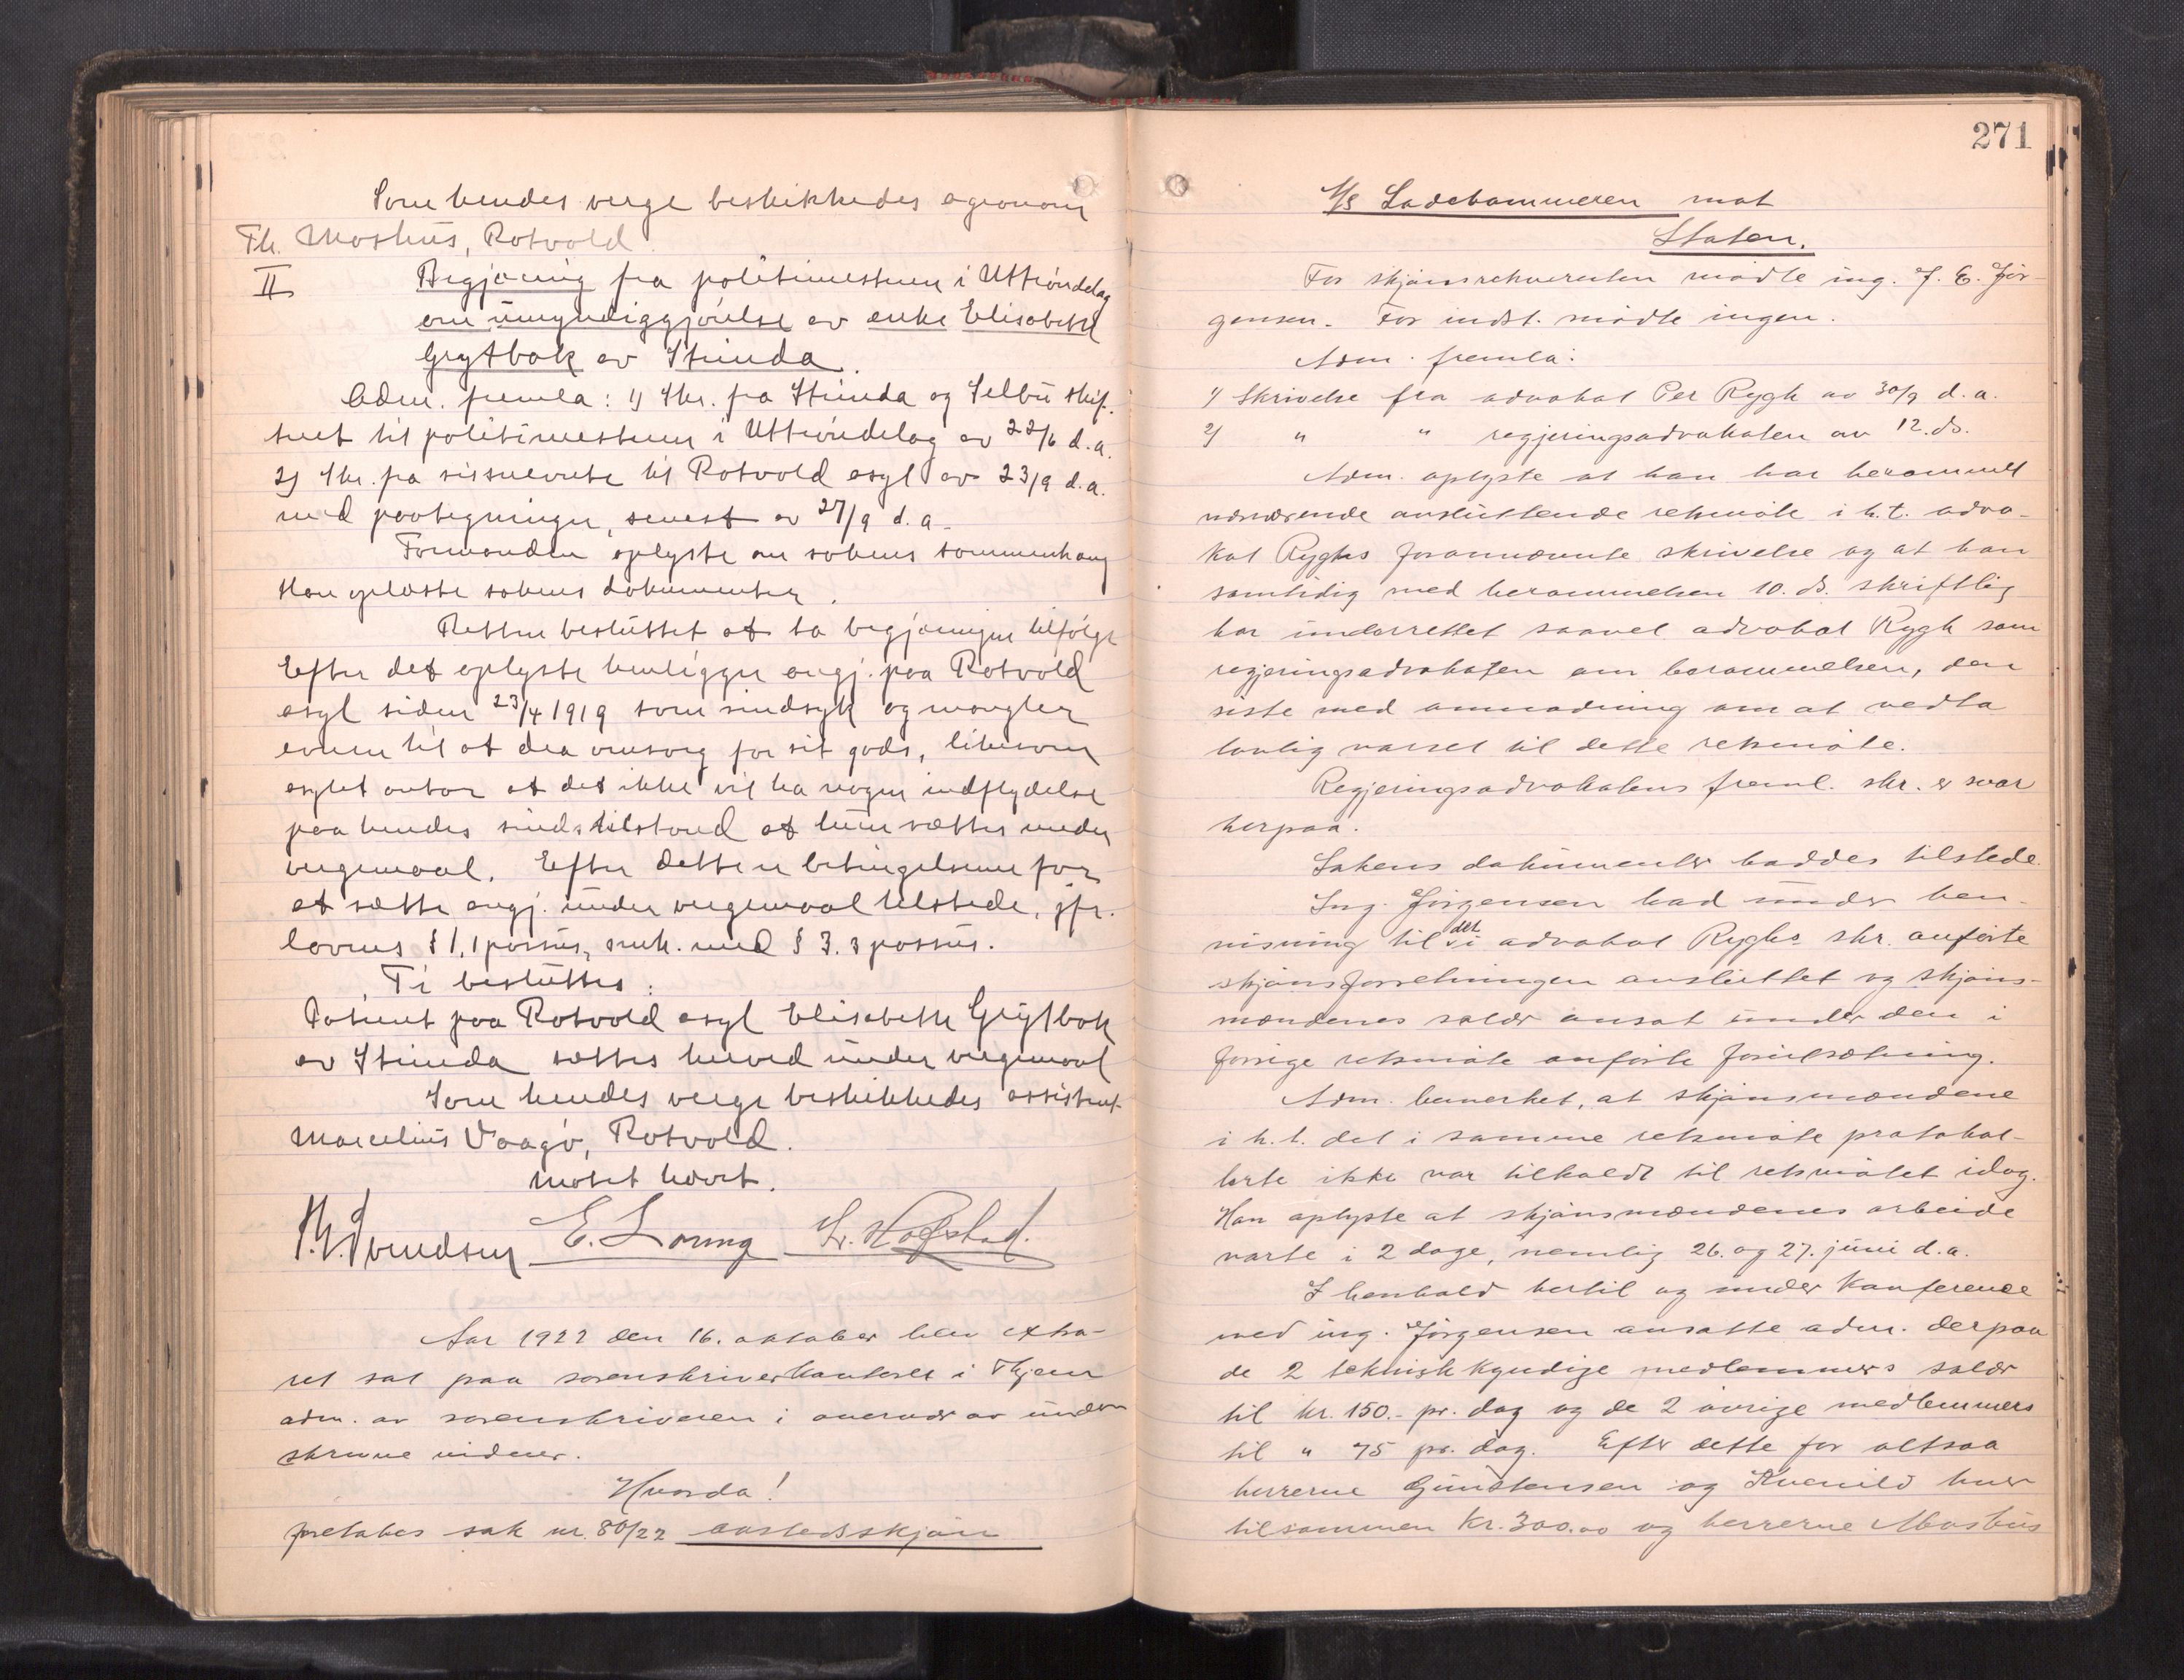 Som hendes verge beskikkedes agronom
Th. Moshus, Rotvold.
II Begjæring fra politimesteren i Uttröndelag
om umyndiggjörelse av enke Elisabeth
Grytbak av Strinda.
Adm. fremla: 1) Skr. fra Strinda og Selbu skif-
teret til politimesteren i Uttröndelag av 22/6 d.a.
2) Skr. fra samme til Rotvold asyl av 23/9 d.a.
med paategninger, senest av 27/9 d.a.
Formanden oplyste om sakens sammenhæng
Han oplæste sakens dokumenter.
Retten besluttet at ta begjæringen tilfölge
Efter det oplyste henligger angj. paa Rotvold
asyl siden 23/4 1919 som sindsyk og mangler
evnen til at dra omsorg for sit gods, likesom
asylet antar at det ikke vil ha nogen indflydelse
paa hendes sindstilstand at hun sættes under
vergemaal. Efter dette er betingelserne for
at sætte angj. under vergemaal tilstede, jfr.
lovens § 1, 1 passus, smh. med § 3. 3 passus.
Ti besluttes:
Patient paa Rotvold asyl Elisabeth Grytbak
av Strinda sættes herved under vergemaal
Som hendes verge beskikkedes assistent
Marcelius Vaagö, Rotvold.
Mötet hævet.
Svendsen E. Loring L. Hofstad.
Aar 1922 den 16. oktober blev extra-
ret sat paa sorenskriverkontoret i Thjem
adm. av sorenskriveren i overvær av under-
skrevne vidner.
Hvorda!
foretokes sak nr. 80/22 aastedsskjön
271
A/S Ladehammeren mot
Staten.
For skjönsrekvirenten mödte ing. J. E. Jör-
gensen. For indst. mödte ingen.
Adm. fremla:
1/ Skrivelse fra advokat Per Rygh av 30/9 d.a.
2/ " " regjeringsadvokaten av 12. ds.
Adm. oplyste at han har berammet
nærværende avsluttende retsmöte i h.t. advo-
kat Ryghs forannævnte skrivelse og at han
samtidig med berammelsen 10. ds. skriftlig
har underrettet saavel advokat Rygh som
regjeringsadvokaten om berammelsen, den
siste med anmodning om at vedta
lovlig varsel til dette retsmöte.
Regjeringsadvokatens freml. skr. er svar
herpaa.
Sakens dokumenter haddes tilstede.
Ing. Jörgensen bad under hen-
visning til det i advokat Ryghs skr. anförte
skjönsforretningen avsluttet og skjöns-
mændenes salær ansat under den i
forrige retsmöte anförte forutsætning.
Adm. bemerket, at skjönsmændene
i h.t. det i samme retsmöte protokol-
lerte ikke var tilkaldt til retsmötet idag.
Han oplyste at skjönsmændenes arbeide
varte i 2 dage, nemlig 26. og 27. juni d.a.
I henhold hertil og under konference
med ing. Jörgensen ansatte adm. derpaa
de 2 teknisk kyndige medlemmers salær
til kr. 150.- pr. dag og de 2 övrige medlemmers
til " 75 pr. dag. Efter dette faar altsaa
herrerne Gundersen og Kvenild hver
tilsammen kr. 300.00 og herrerne Moshus